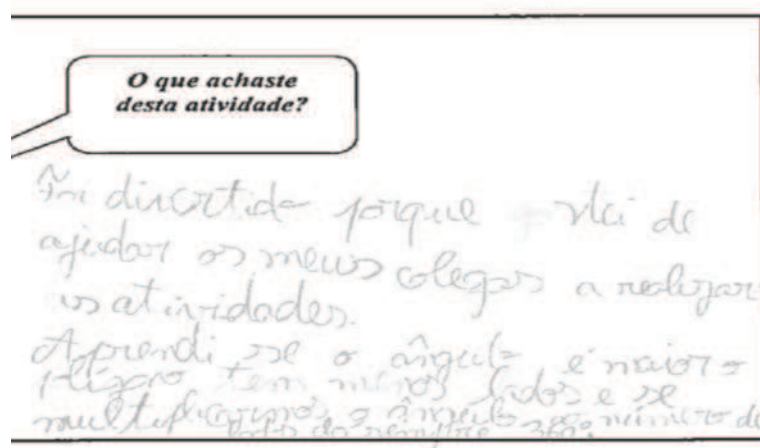 O que achaste
desta atividade?
Foi divertida porque de
ajudar os meus colegas a realizar
as atividades.
Aprendi se o ângulo é maior o
tem menos lados e se
multiplicarmos o ângulo número de
lados dá sempre 360